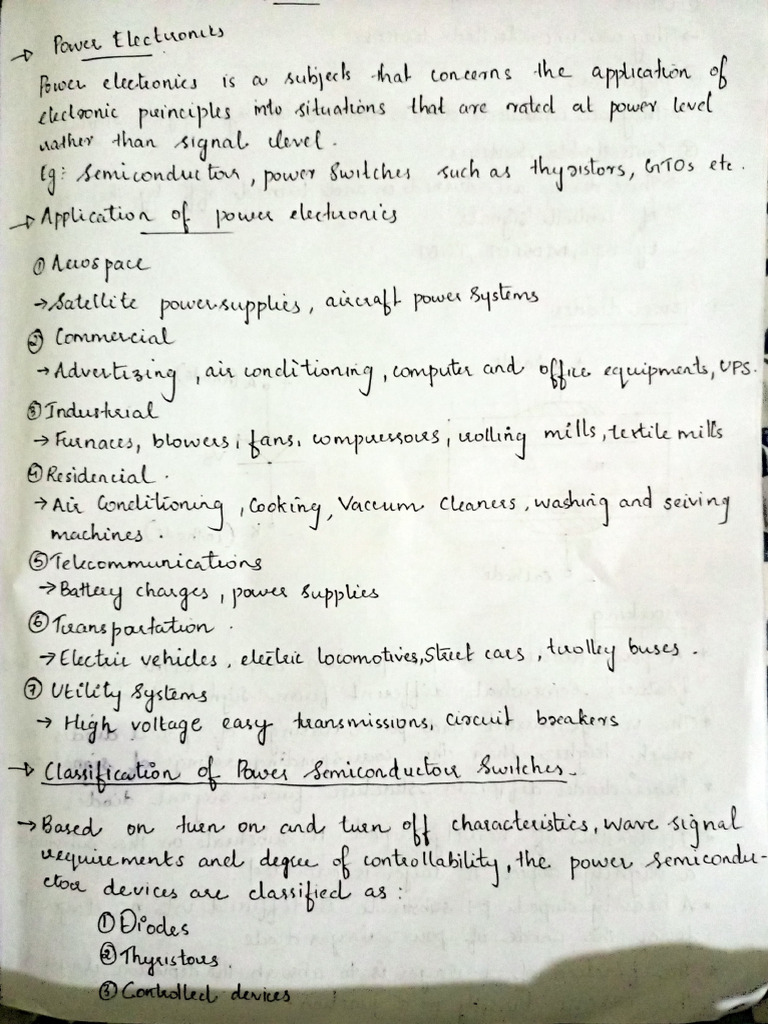 → Power Electronics
Power electronics is a subjects that concerns the application of
electronic principles into situations that are rated at power level
rather than signal level.
Eg: Semiconductors, power switches such as thyristors, GTOs etc.
→ Application of power electronics
① Aerospace
→ Satellite power supplies, aircraft power systems
② Commercial
→ Advertizing, air conditioning, computer and office equipments, UPS.
③ Industrial
→ Furnaces, blowers, fans, compressors, rolling mills, textile mills
④ Residencial.
→ Air Conditioning, Cooking, Vaccum Cleaners, washing and seiving
machines.
⑤ Telecommunications
→ Battery charges, power supplies
⑥ Transportation.
→ Electric vehicles, electric locomotives, Street cars, trolley buses.
⑦ Utility Systems
→ High voltage easy transmissions, circuit breakers
→ Classification of Power Semiconductor Switches.
→ Based on turn on and turn off characteristics, wave signal
requirements and degree of controllability, the power semicondu-
ctor devices are classified as:
① Diodes
② Thyristors.
③ Controlled devices